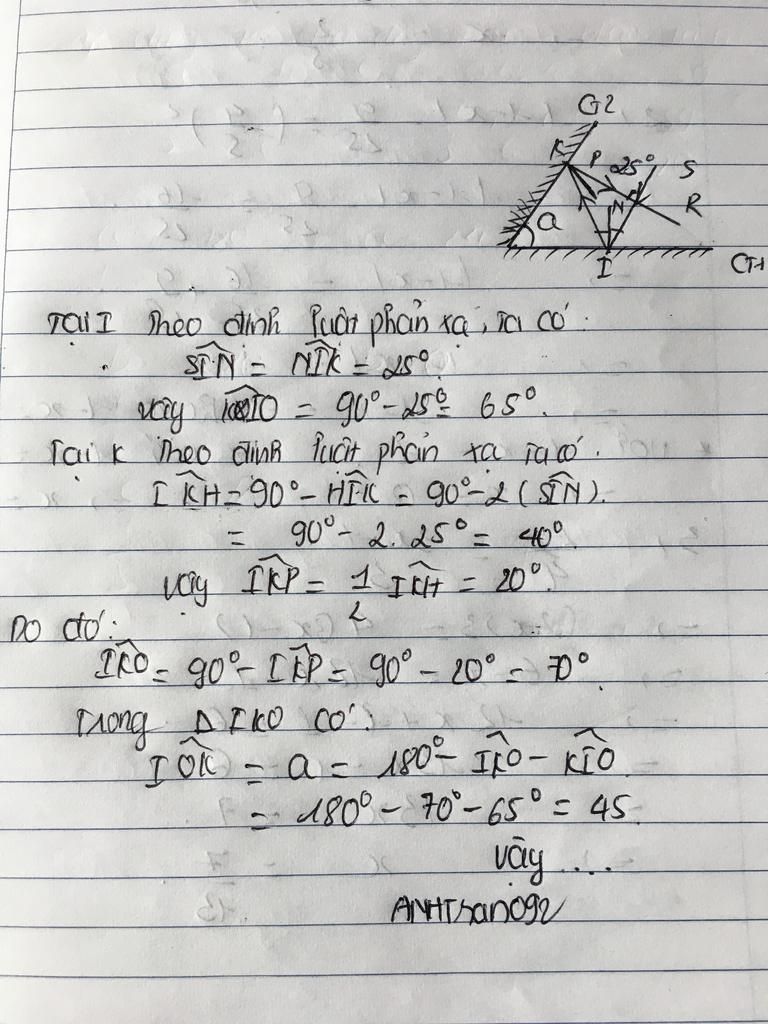 G2
K P 25° S
N R
a
I G1
Tại I theo định luật phản xạ, ta có:
SIN = NIK = 25°.
vậy KIO = 90° - 25° = 65°.
Tại K theo định luật phản xạ ta có.
IKH = 90° - HIK = 90° - 2(SIN).
= 90° - 2.25° = 40°.
vậy IKP = 1/2 IKH = 20°.
Do đó:
IKO = 90° - IKP = 90° - 20° = 70°.
Trong Δ IKO có:
IOK = a = 180° - IKO - KIO
= 180° - 70° - 65° = 45.
vậy ....
ANHThan092